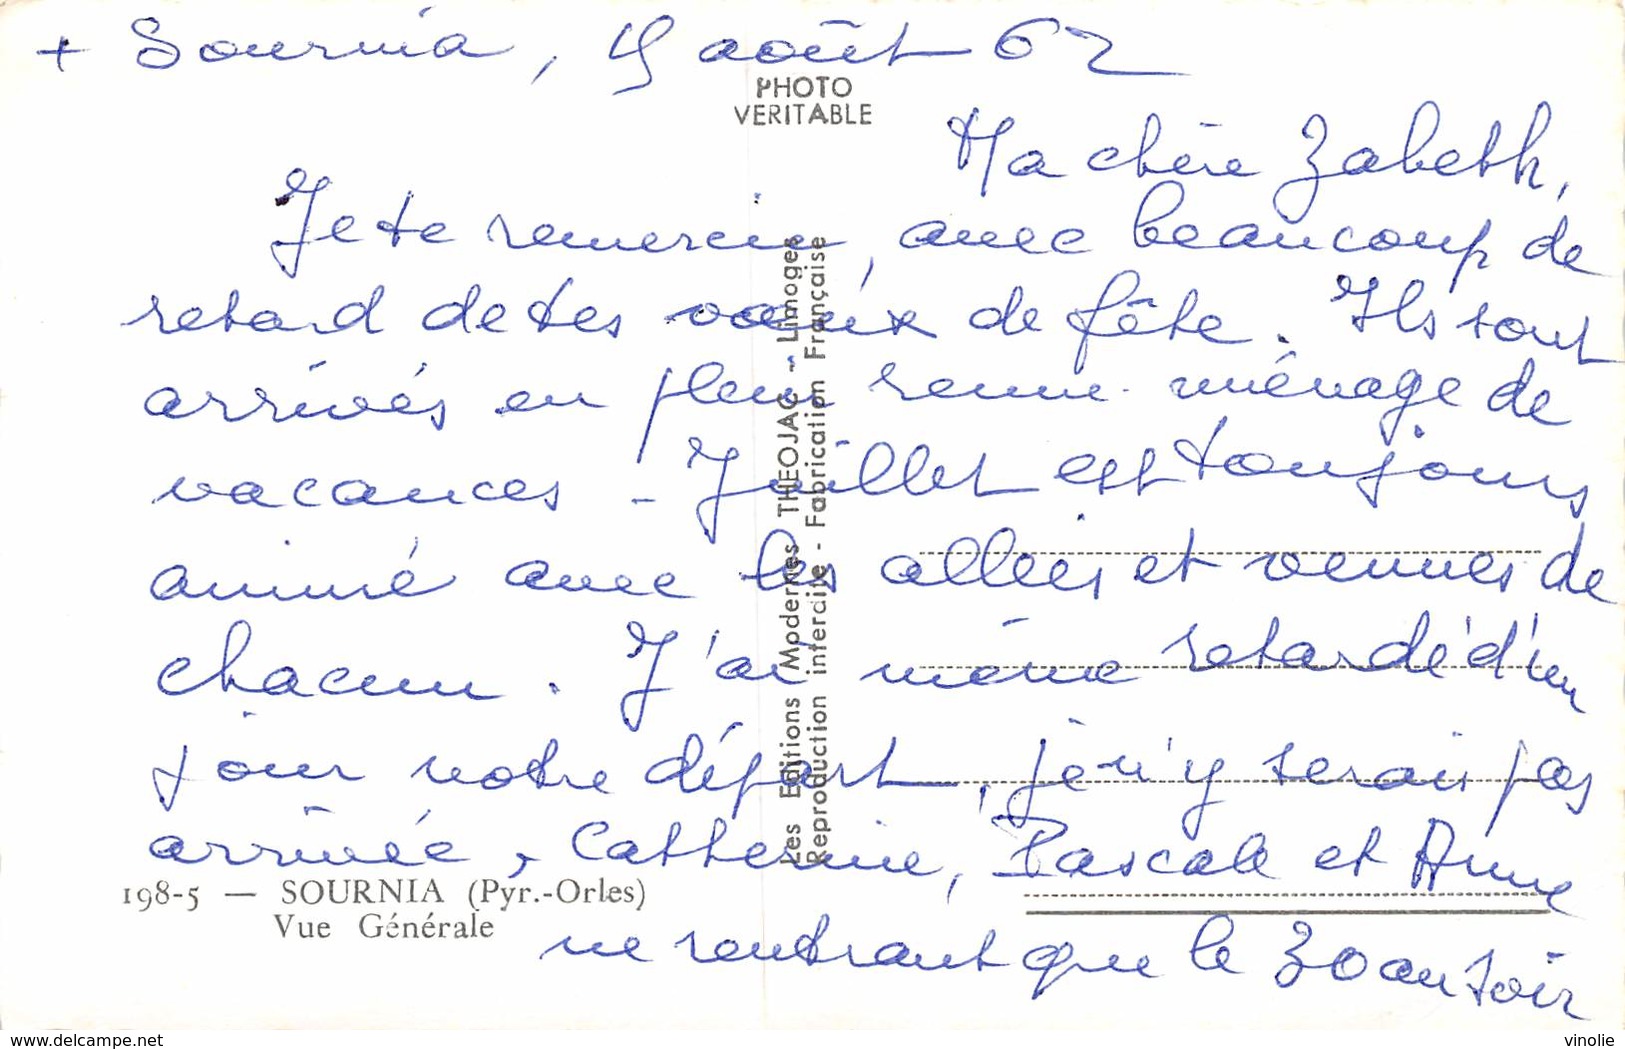 + Sournia, 15 août 62
PHOTO
VERITABLE
Ma chère Zabeth,
Je te remercie, avec beaucoup de
retard de tes vœux de fête. Ils sont
arrivés en plein remue-ménage de
vacances - Juillet est toujours
animé avec les allées et venues de
chacun. J'ai même retardé d'un
jour notre départ, je n'y serais pas
arrivée, Catherine, Pascale et Anne
ne rentrant que le 30 au soir
198-5 — SOURNIA (Pyr.-Orles)
Vue Générale
Les Editions Modernes THEOJAC - Limoges
Reproduction interdite - Fabrication Française
www.delcampe.net
vinolie